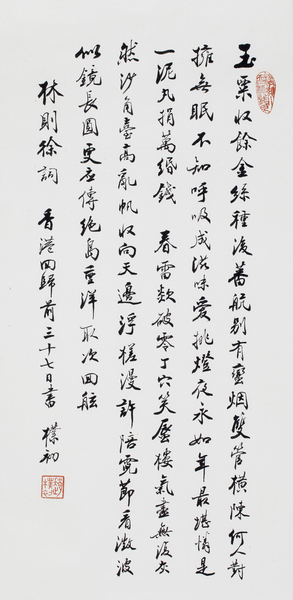 玉粟收餘金絲種後蕃航别有蠻烟雙管橫陳何人對
擁無眠不知呼吸成滋味愛挑燈夜永如年最堪憐是
一泥丸捐萬緡錢 春雷欻破零丁穴笑蜃樓氣盡無復灰
然沙角臺高亂帆收向天邊浮槎漫許陪霓節看澂波
似鏡長圓更應傳絶島重洋取次回舷
林則徐詞 香港回歸前三十七日書 樸初